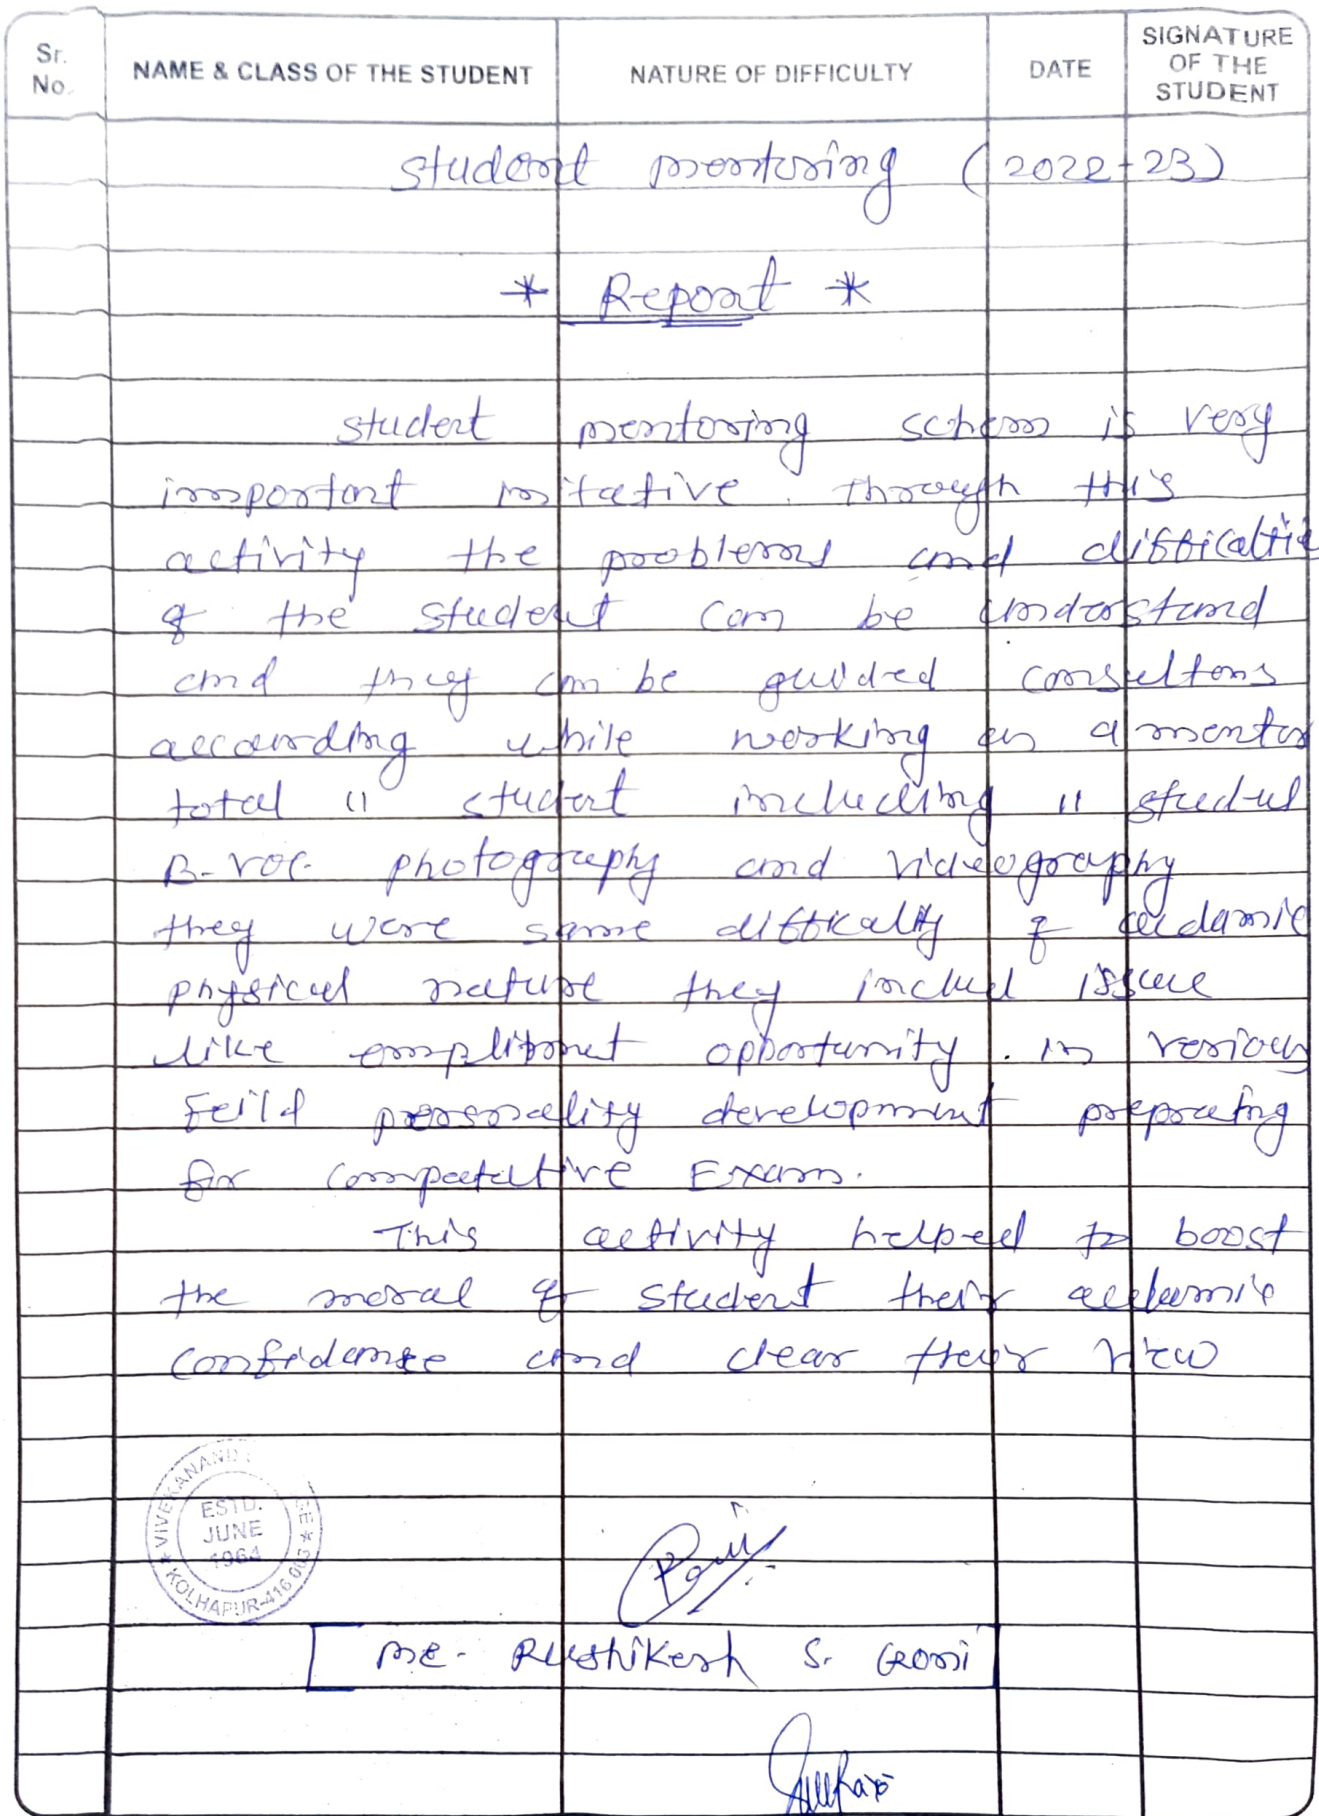 Sr. No.
NAME & CLASS OF THE STUDENT
NATURE OF DIFFICULTY
DATE
SIGNATURE OF THE STUDENT
student mentoring (2022-23)
* Report *
student mentoring schem is very
important initative. Through this
activity the problems and difficaltie
of the student can be understand
and they can be guided consultons
accourding while working as a mentor
total 11 student including 11 student
B-voc. photography and videography
they were some difficalty of
physical nature they includ issue
like opportunity. in various
Feild personality development preprating
for compeetative Exam.
This activity helped to boost
the moral of student their
confidance and clear their view
VIVEKANAND
ESTD.
JUNE
1964
KOLHAPUR-416 003
Mr. Rushikesh S. Goni